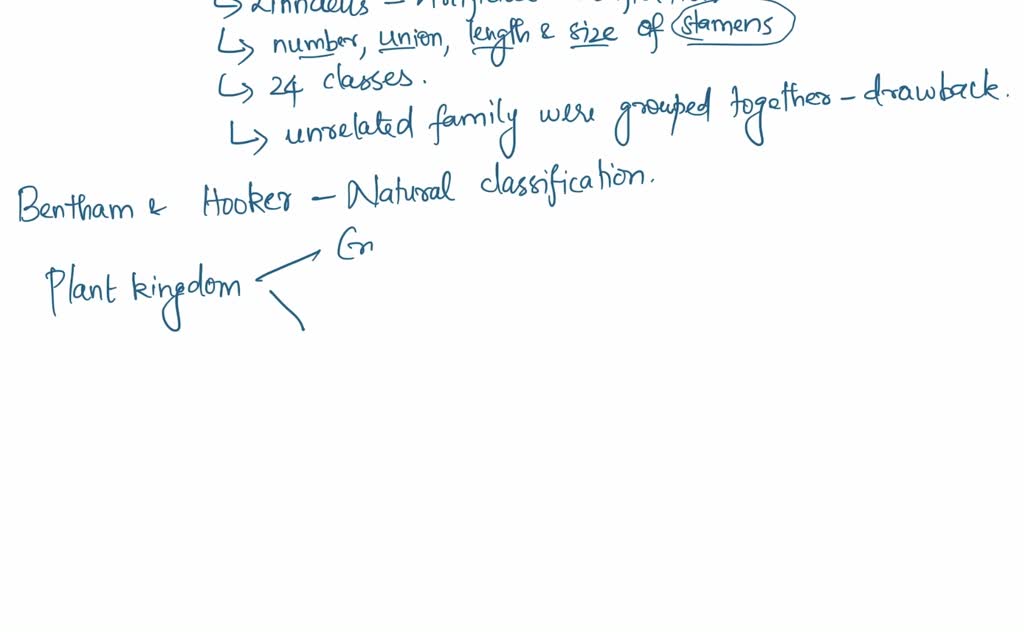 ↳ Linnaeus –
↳ number, union, length & size of stamens
↳ 24 classes.
↳ unrelated family were grouped together – drawback.
Bentham & Hooker – Natural classification.
Plant kingdom